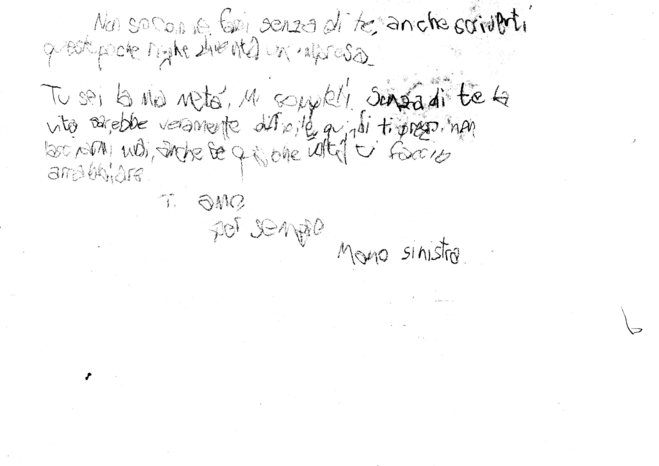 Non so come farei senza di te, anche scriverti
queste poche righe diventa un'impresa.
Tu sei la mia metà. Mi completi. Senza di te la
vita sarebbe veramente difficile, quindi ti prego, non
lasciarmi mai, anche se qualche volta ti faccio
arrabbiare.
Ti amo
per sempre
Mano sinistra